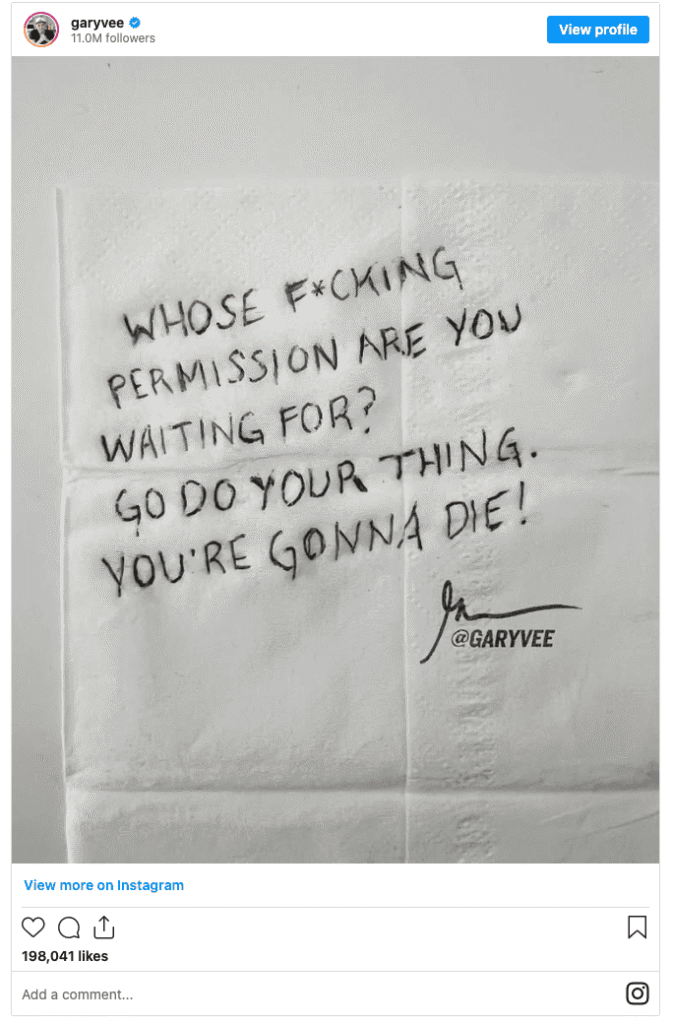 garyvee
11.0M followers
View profile
WHOSE F*CKING
PERMISSION ARE YOU
WAITING FOR?
GO DO YOUR THING.
YOU'RE GONNA DIE!
@GARYVEE
View more on Instagram
198,041 likes
Add a comment...